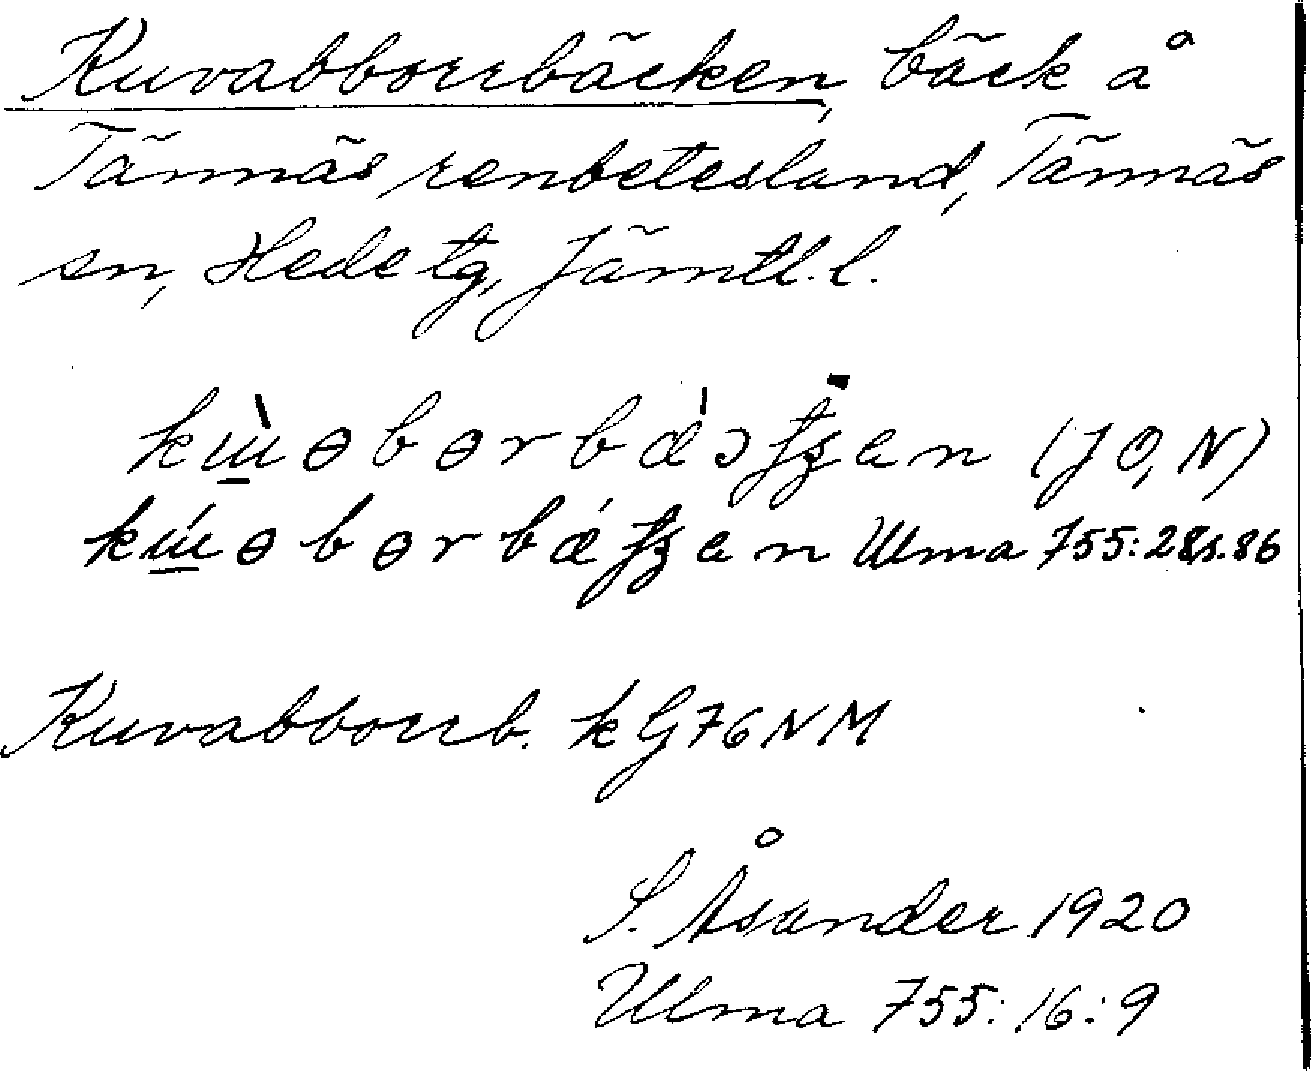 Kuvabborrbäcken, bäck å
Tännäs renbetesland, Tännäs
sn, Hede tg, Jämtl. l.
(JO, N)
Ulma 755:28 s. 86
Kuvabborrb. kG76NM
S. Åsander 1920
Ulma 755:16:9